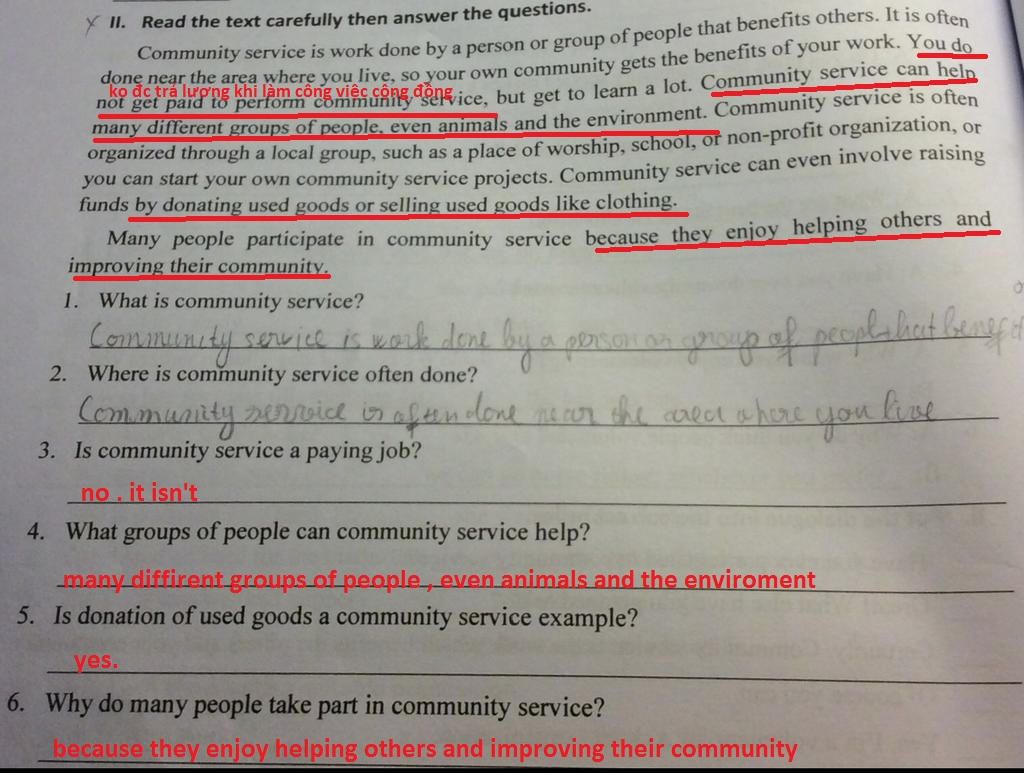 X II. Read the text carefully then answer the questions.
Community service is work done by a person or group of people that benefits others. It is often
done near the area where you live, so your own community gets the benefits of your work. You do
ko đc trả lương khi làm công việc cộng đồng
not get paid to perform community service, but get to learn a lot. Community service can help
many different groups of people, even animals and the environment. Community service is often
organized through a local group, such as a place of worship, school, or non-profit organization, or
you can start your own community service projects. Community service can even involve raising
funds by donating used goods or selling used goods like clothing.
Many people participate in community service because they enjoy helping others and
improving their community.
1. What is community service?
Community service is work done by a person or group of people that benefit
2. Where is community service often done?
Community service is often done near the area where you live
3. Is community service a paying job?
no . it isn't
4. What groups of people can community service help?
many diffirent groups of people , even animals and the enviroment
5. Is donation of used goods a community service example?
yes.
6. Why do many people take part in community service?
because they enjoy helping others and improving their community